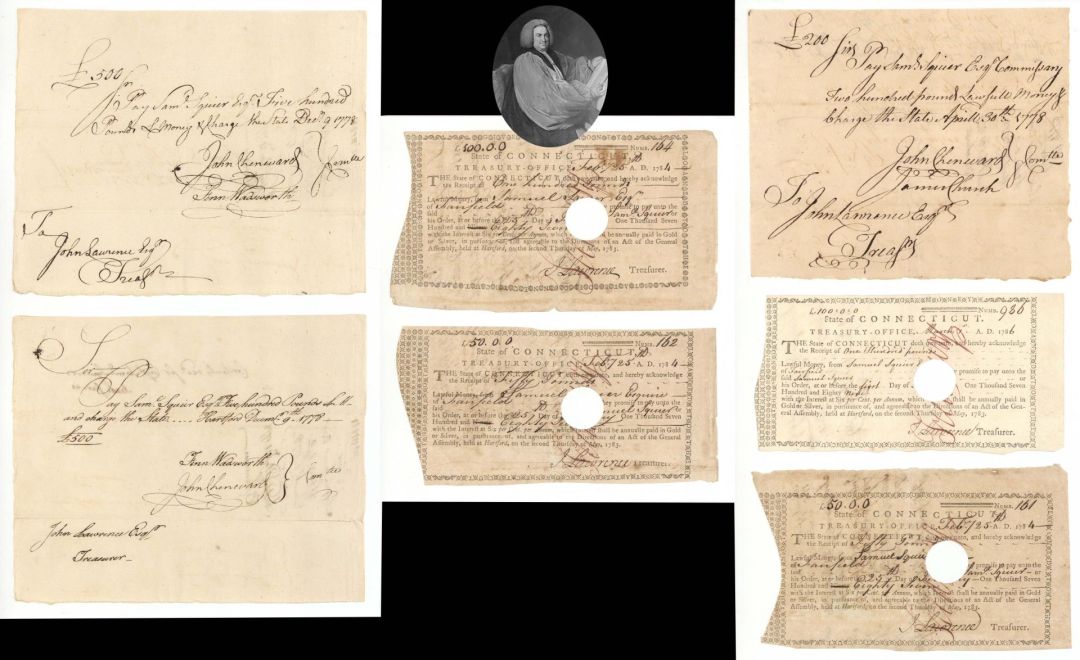 £500
Sr Pay Saml. Squier Esqr. Five hundred
Pounds L Money & Charge the State Decr. 9 1778
John Chenevard
Fenn Wadsworth
Comtte
To
John Lawrence Esqr
Treasr
Pay Saml. Squier Esqr. Five hundred Pounds
and charge the State Hartford Decemr. 9th 1778
£500
Fenn Wadsworth
John Chenevard
Comtte
John Lawrence Esqr
Treasurer
£100.0.0 NUMB. 164
State of CONNECTICUT.
TREASURY-OFFICE, Feby 25th A. D. 1784
THE State of CONNECTICUT doth and hereby acknowledge
the Receipt of One hundred Pounds
Lawful Money, from Samuel Squier Esqr
of Fairfield promise to pay unto the
said Saml. Squier or
his Order, at or before the 25th Day of One Thousand Seven
Hundred and Eighty Seven
with the Interest at Six per Cent. per Annum, which shall be annually paid in Gold
or Silver, in pursuance of, and agreeable to the Directions of an Act of the General
Assembly, held at Hartford, on the second Thursday of May, 1783.
J. Lawrence Treasurer.
£50.0.0 NUMB. 162
State of CONNECTICUT.
TREASURY-OFFICE, Feby 25th A. D. 1784
THE State of CONNECTICUT doth and hereby acknowledge
the Receipt of Fifty Pounds
Lawful Money, from Samuel Squier Esquire
of Fairfield promise to pay unto the
said Samuel Squier
his Order, at or before the 25th Day of One Thousand Seven
Hundred and Eighty Seven
with the Interest at Six per Cent. per Annum, which shall be annually paid in Gold
or Silver, in pursuance of, and agreeable to the Directions of an Act of the General
Assembly, held at Hartford, on the second Thursday of May, 1783.
J. Lawrence Treasurer.
£200
Sir Pay Saml. Squier Esqr. Commissary
Two hundred pounds Lawfull Money &
Charge the State. Aprill 30th. 1778
John Chenevard
James Church
Comtte
To
John Lawrence Esqr
Treasr
£100.0.0 NUMB. 986
State of CONNECTICUT.
TREASURY-OFFICE, March A. D. 1786
THE State of CONNECTICUT doth and hereby acknowledge
the Receipt of One Hundred pounds
Lawful Money, from Samuel Squier
of Fairfield promise to pay unto the
said Samuel Squier or
his Order, at or before the first Day of One Thousand Seven
Hundred and Eighty
with the Interest at Six per Cent. per Annum, which shall be annually paid in
Gold or Silver, in pursuance of, and agreeable to the Directions of an Act of the Gen-
eral Assembly, held at Hartford, on the second Thursday of May, 1783.
J. Lawrence Treasurer.
£50.0.0 NUMB. 161
State of CONNECTICUT.
TREASURY-OFFICE, Feby 25th A. D. 1784
THE State of CONNECTICUT doth and hereby acknowledge
the Receipt of Fifty Pounds
Lawful Money, from Samuel Squier
of Fairfield promise to pay unto the
said Saml. Squier or
his Order, at or before the 25th Day of One Thousand Seven
Hundred and Eighty Seven
with the Interest at Six per Cent. per Annum, which shall be annually paid in Gold
or Silver, in pursuance of, and agreeable to the Directions of an Act of the General
Assembly, held at Hartford, on the second Thursday of May, 1783.
J. Lawrence Treasurer.